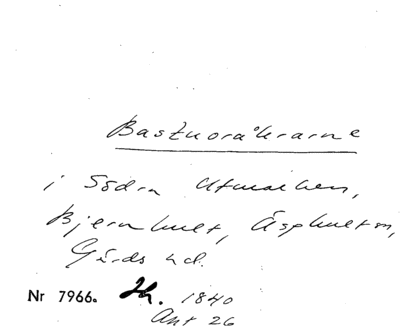 Bastuoråkrarne
i Södra Utmarken,
Bjernhult, Äsphult sn,
Gärds hd.
Nr 7966. 1840
Akt 26